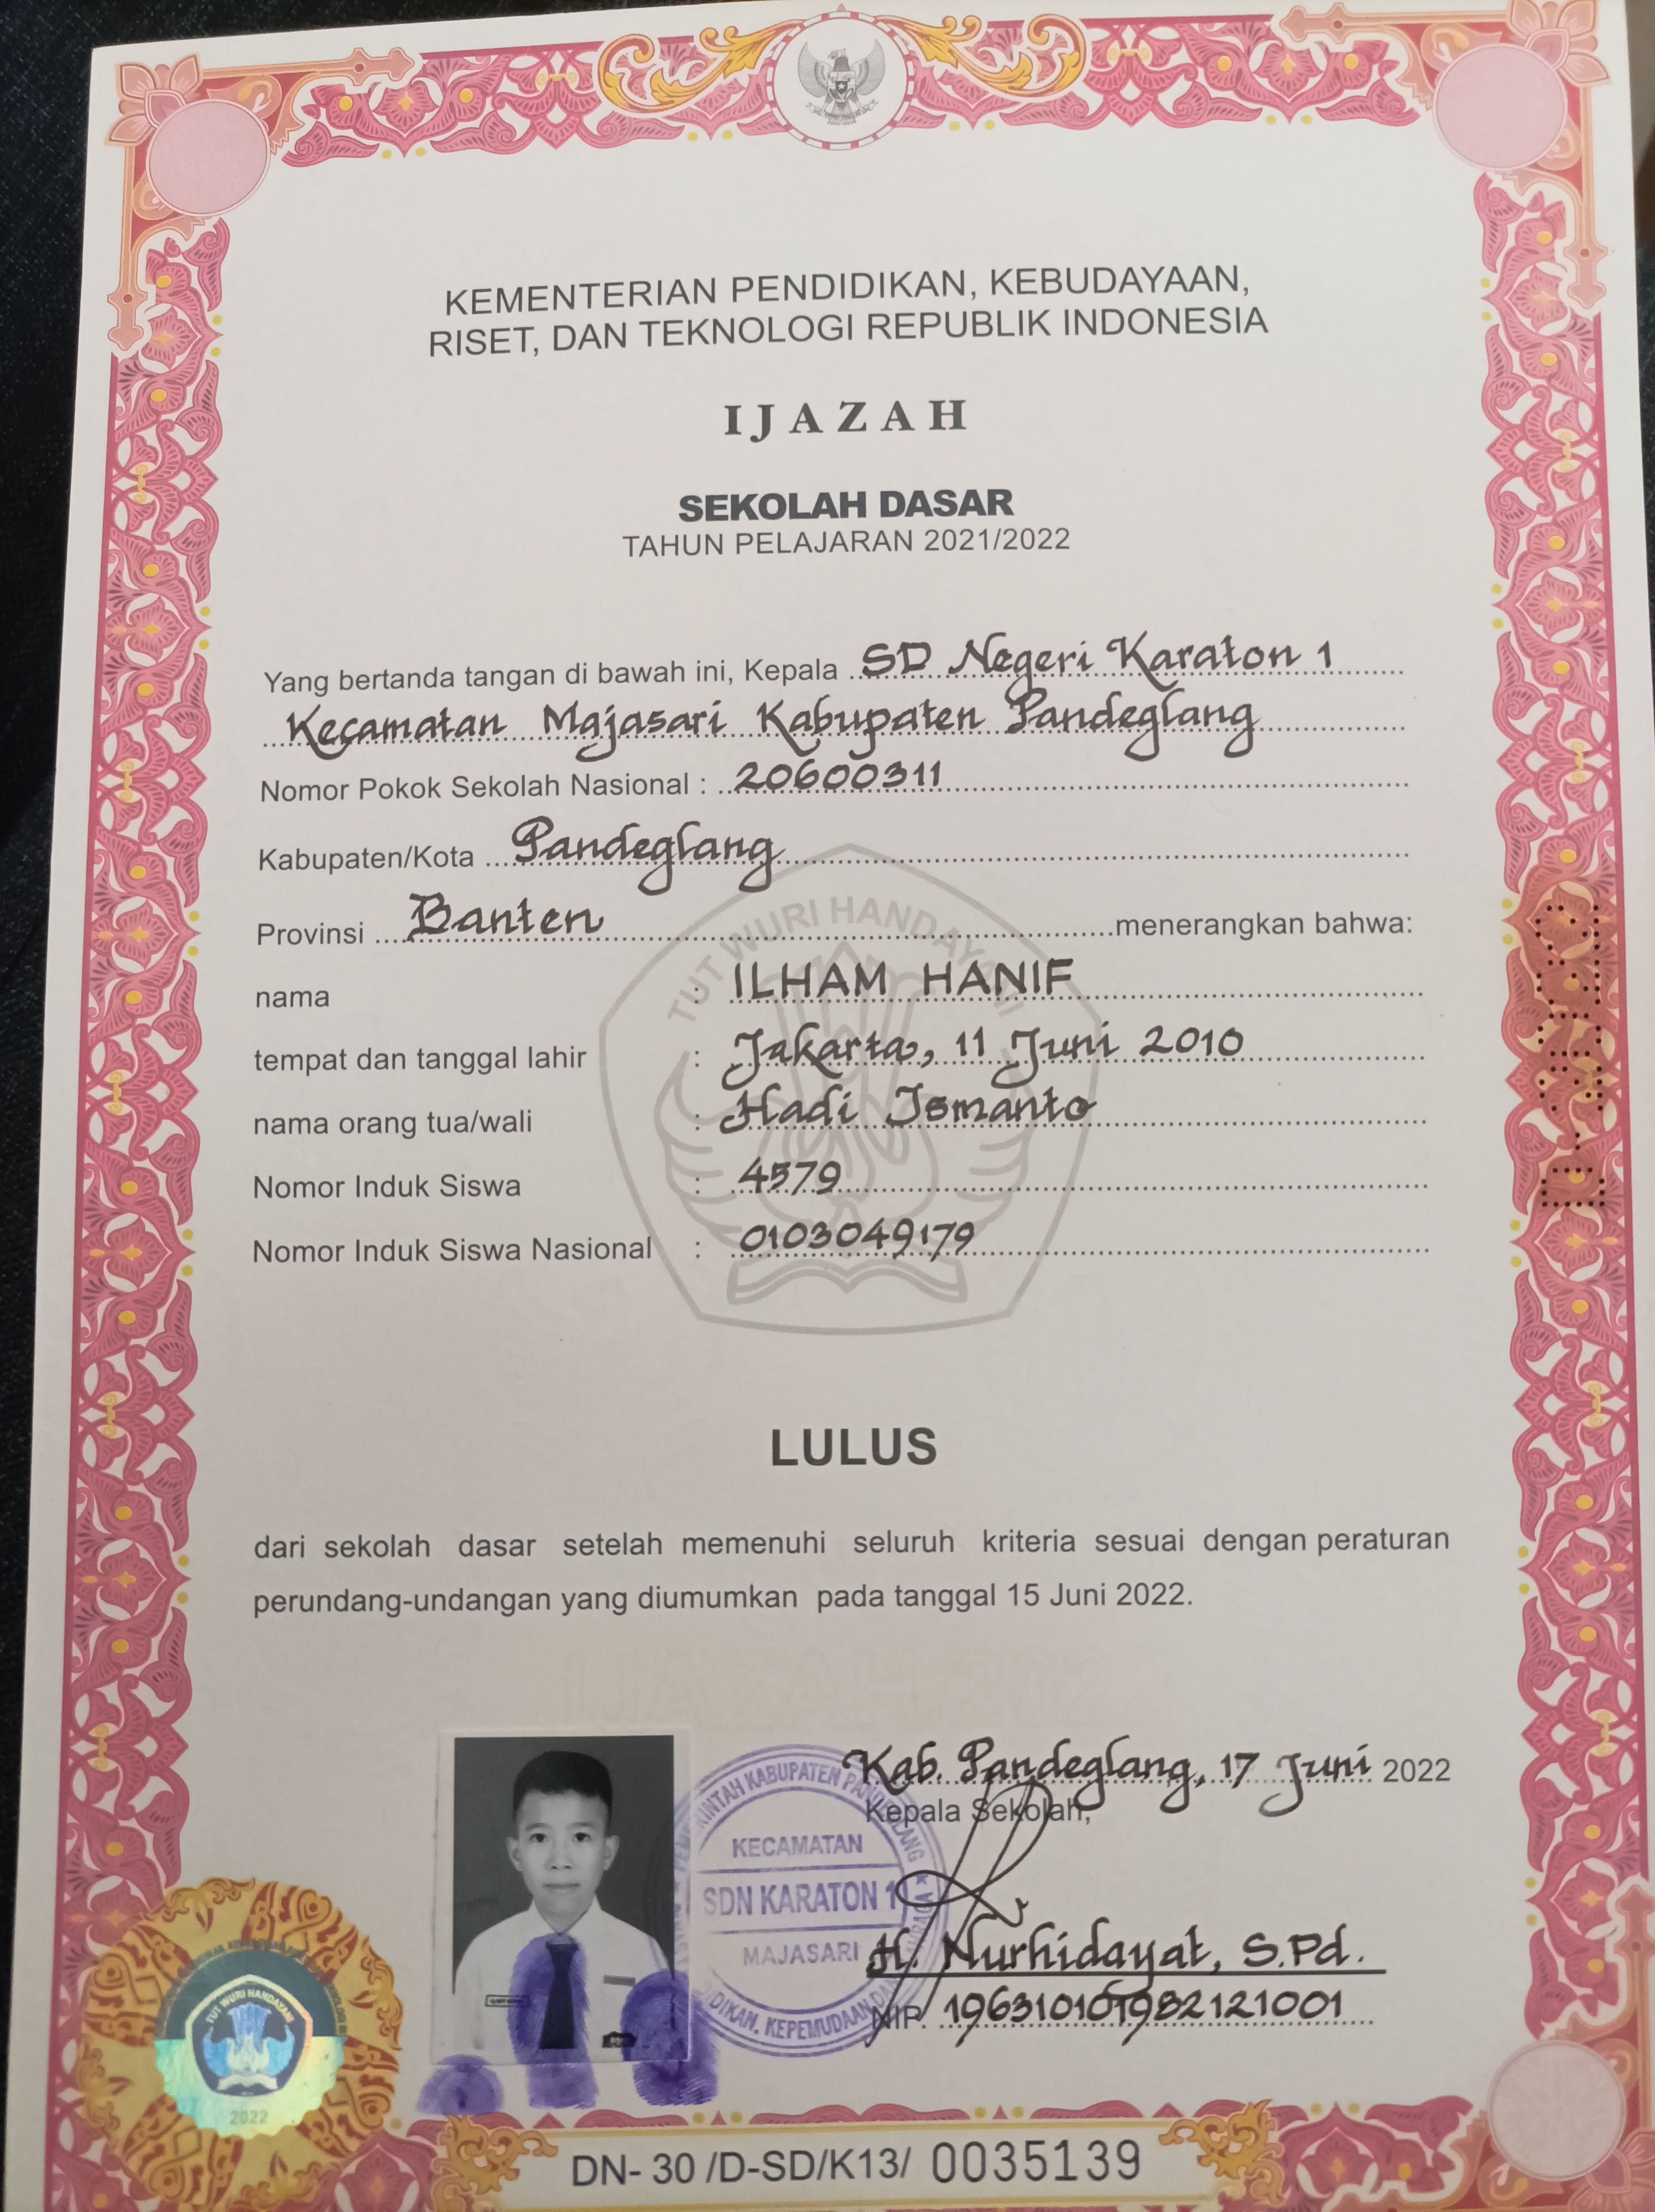 KEMENTERIAN PENDIDIKAN, KEBUDAYAAN,
RISET, DAN TEKNOLOGI REPUBLIK INDONESIA
IJAZAH
SEKOLAH DASAR
TAHUN PELAJARAN 2021/2022
Yang bertanda tangan di bawah ini, Kepala SD Negeri Karaton 1
Kecamatan Majasari Kabupaten Pandeglang
Nomor Pokok Sekolah Nasional : 20600311
Kabupaten/Kota Pandeglang
Provinsi Banten menerangkan bahwa:
nama : ILHAM HANIF
tempat dan tanggal lahir : Jakarta, 11 Juni 2010
nama orang tua/wali : Hadi Ismanto
Nomor Induk Siswa : 4579
Nomor Induk Siswa Nasional : 0103049179
TUT WURI HANDAYANI
LULUS
dari sekolah dasar setelah memenuhi seluruh kriteria sesuai dengan peraturan
perundang-undangan yang diumumkan pada tanggal 15 Juni 2022.
Kab. Pandeglang, 17 Juni 2022
Kepala Sekolah,
KABUPATEN PANDEGLANG
KECAMATAN
SDN KARATON 1
MAJASARI
KEPEMUDAAN
H. Nurhidayat, S.Pd.
NIP. 196310101982121001
TUT WURI HANDAYANI
2022
DN- 30 /D-SD/K13/ 0035139